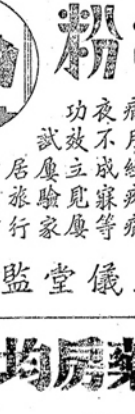 粉
夜不成寐等
功效立見屢
試屢驗家
居旅行
儀堂監
藥房均